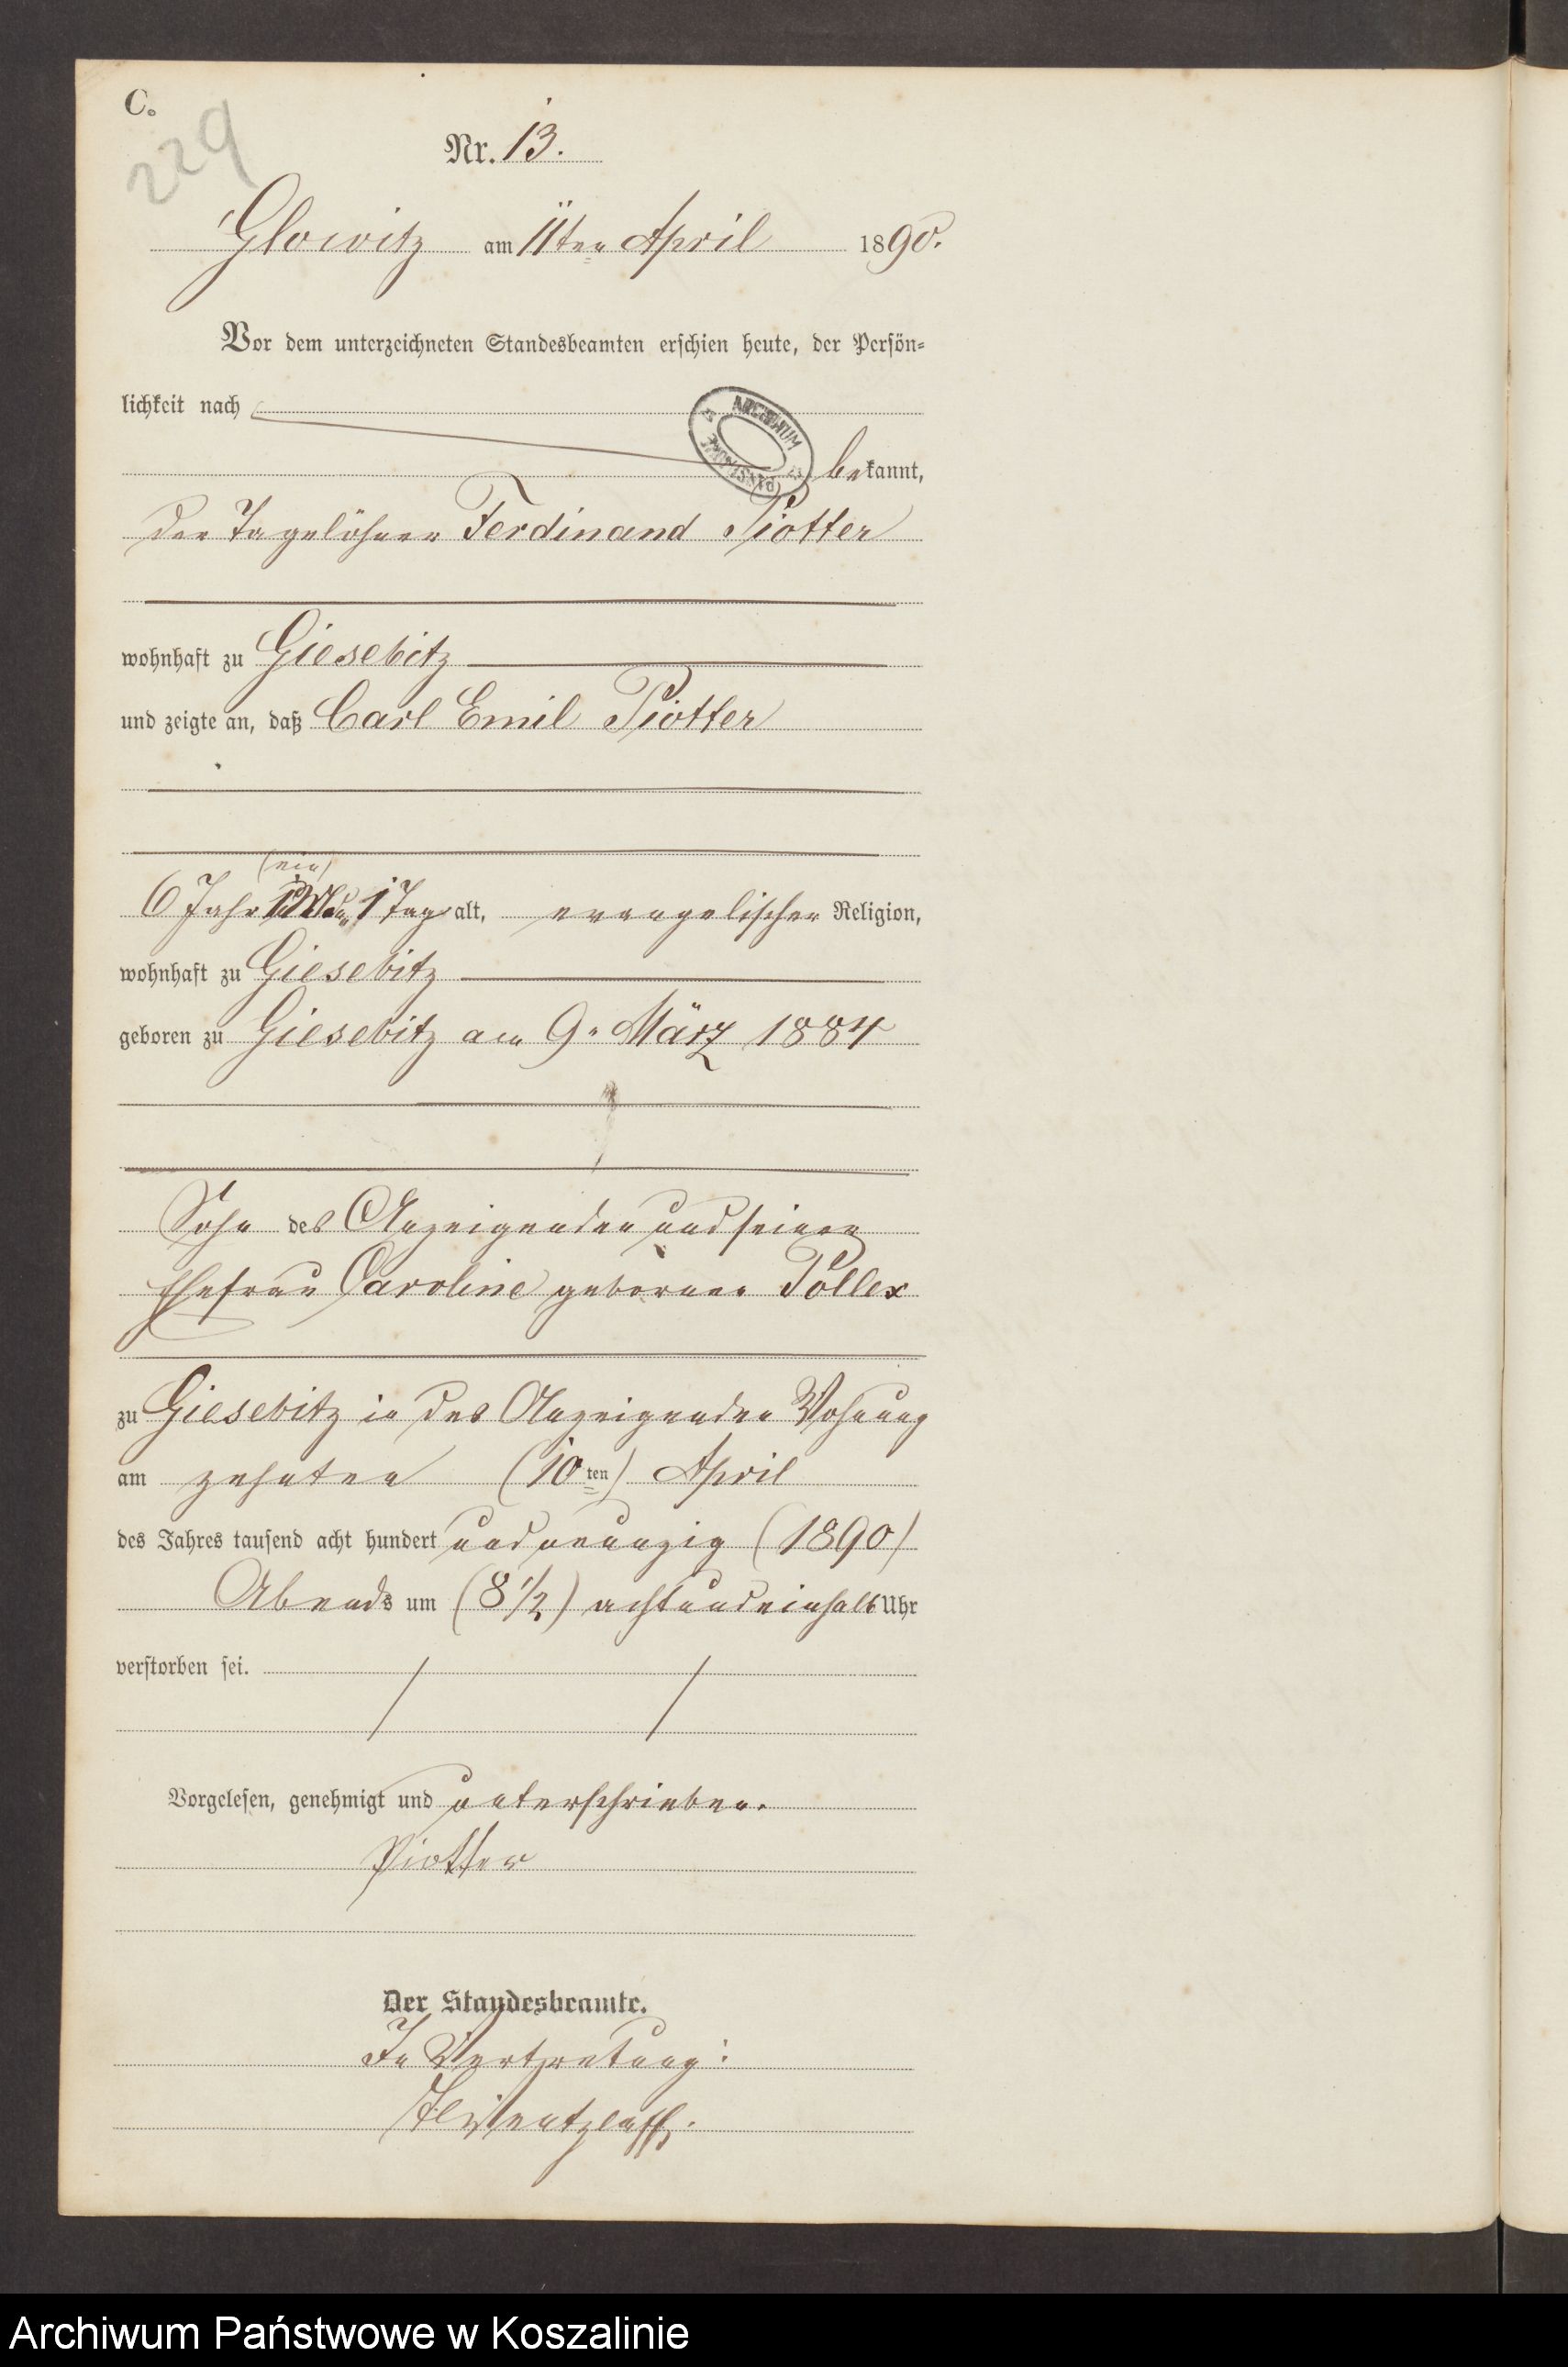 C.
229
Nr. 13.
Glowitz am 11ten April 1890.
Vor dem unterzeichneten Standesbeamten erschien heute, der Persön-
lichkeit nach
ARCHIWUM
bekannt,
der Tagelöhner Ferdinand Piotter
wohnhaft zu Giesebitz
und zeigte an, daß Carl Emil Piotter
(ein)
6 Jahr 1 Mon 1 Tag alt, evangelischer Religion,
wohnhaft zu Giesebitz
geboren zu Giesebitz am 9. März 1884
Sohn des Anzeigenden und seiner
Ehefrau Caroline geborner Pollex
zu Giesebitz in des Anzeigenden Wohnung
am zehnten (10ten) April
des Jahres tausend acht hundert und neunzig (1890)
Abends um (8 1/2) achtundeinhalb Uhr
verstorben sei.
Vorgelesen, genehmigt und unterschrieben.
Piotter
Der Standesbeamte.
In Vertretung:
Archiwum Państwowe w Koszalinie